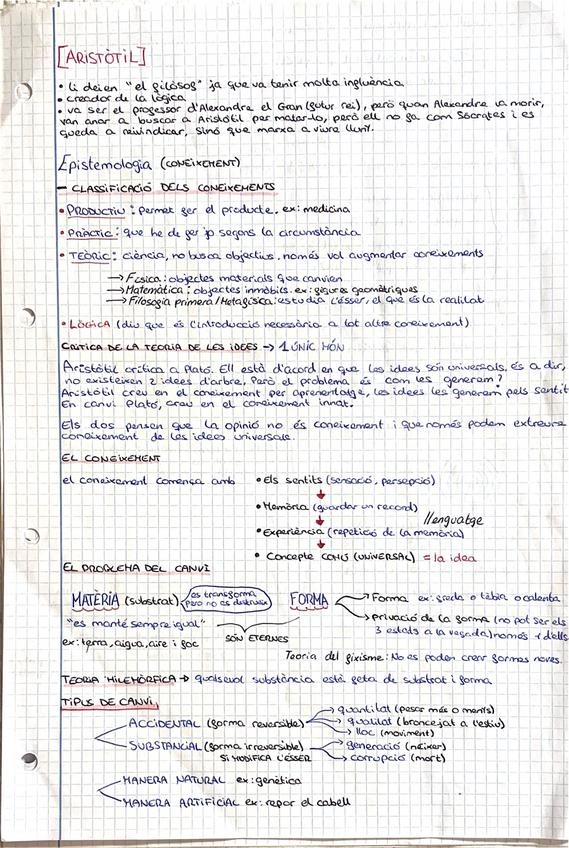 [ARISTÒTIL]
• li deien "el filòsof" ja que va tenir molta influència
• creador de la lògica
• va ser el professor d'Alexandre el Gran (futur rei), però quan Alexandre va morir,
van anar a buscar a Aristòtil per matar-lo, però ell no fa com Sòcrates i es
queda a reivindicar, sinó que marxa a viure lluny.
Epistemologia (CONEIXEMENT)
- CLASSIFICACIÓ DELS CONEIXEMENTS
• PRODUCTIU: Permet fer el producte. ex: medicina
• PRÀCTIC: que he de fer jo segons la circumstància
• TEÒRIC: ciència, no busca objectius, només vol augmentar coneixements
→ Física: objectes materials que canvien
→ Matemàtica: objectes immòbils. ex: figures geomètriques
→ Filosofia primera/Metafísica: estudia l'ésser, el que és la realitat
• LÒGICA (diu que és l'introducció necessària a tot altre coneixement)
CRÍTICA DE LA TEORIA DE LES IDEES → 1 ÚNIC MÓN
Aristòtil critica a Plató. Ell està d'acord en que les idees són universals, és a dir,
no existeixen 2 idees d'arbre. Però el problema és com les generam?
Aristòtil creu en el coneixement per aprenentatge, les idees les generam pels sentit
En canvi Plató, creu en el coneixement innat.
Els dos pensen que la opinió no és coneixement i que només podem extreure
coneixement de les idees universals.
EL CONEIXEMENT
el coneixement comença amb • Els sentits (sensació, persepció)
• Memòria (guardar un record)
llenguatge
• Experiència (repetició de la memòria)
• Concepte COMÚ (UNIVERSAL) = la idea
EL PROBLEMA DEL CANVI
MATÈRIA (substrat) es transforma però no es destrueix FORMA → Forma ex: freda o tèbia o calenta
"es manté sempre igual" → privació de la forma (no pot ser els
3 estats a la vegada) només 1 d'ells
ex: terra, aigua, aire i foc SÓN ETERNES
Teoria del fixisme: No es poden crear formes noves.
TEORIA HILEMÒRFICA → qualsevol substància està feta de substrat i forma
TIPUS DE CANVI
ACCIDENTAL (forma reversible) → quantitat (pesar més o menys)
→ qualitat (broncejat a l'estiu)
→ lloc (moviment)
SUBSTANCIAL (forma irreversible) → generació (néixer)
SI MODIFICA L'ÉSSER → corrupció (mort)
MANERA NATURAL ex: genètica
MANERA ARTIFICIAL ex: rapar el cabell